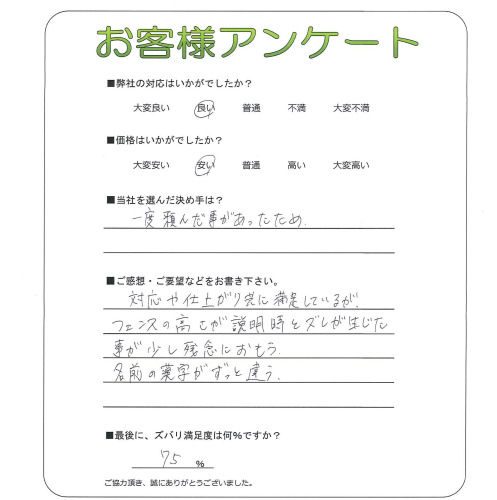 お客様アンケート
■弊社の対応はいかがでしたか？
大変良い 良い 普通 不満 大変不満
■価格はいかがでしたか？
大変安い 安い 普通 高い 大変高い
■当社を選んだ決め手は？
一度頼んだ事があったため．
■ご感想・ご要望などをお書き下さい。
対応や仕上がり共に満足しているが、
フェンスの高さが説明時とズレが生じた
事が少し残念におもう．
名前の漢字がずっと違う．
■最後に、ズバリ満足度は何%ですか？
75 %
ご協力頂き、誠にありがとうございました。